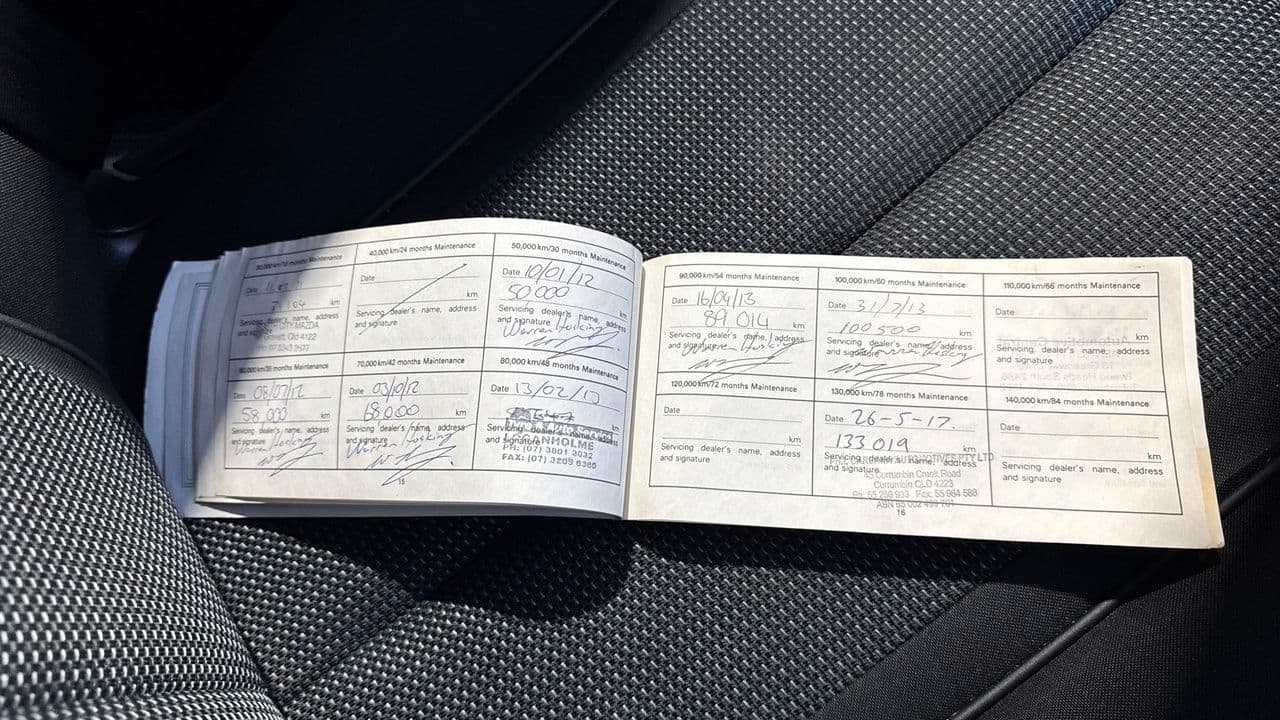 40,000 km/24 months Maintenance
Date
km
Servicing dealer's name, address
and signature
50,000 km/30 months Maintenance
Date 10/01/12
50 000
km
Servicing dealer's name, address
and signature
Warren Hosking
months Maintenance
Date
km
Servicing dealer's name, address
and
CITY MAZDA
Qld 4122
60,000 km/36 months Maintenance
Date 08/07/12
58 000 km
Servicing dealer's name, address
and signature Hosking
Warren
70,000 km/42 months Maintenance
Date 03/10/12
68000 km
Servicing dealer's name, address
and signature Hosking
80,000 km/48 months Maintenance
Date 13/02/13
Servicing dealer's name, address
and signature
PH: (07) 3801 3032
FAX: (07) 3209 6380
15
90,000 km/54 months Maintenance
Date 16/04/13
89 014 km
Servicing dealer's name, address
and signature
Warren Hosking
100,000 km/60 months Maintenance
Date 31/7/13
100 500 km
Servicing dealer's name, address
and signature Warren Hosking
110,000 km/66 months Maintenance
Date
km
Servicing dealer's name, address
and signature
120,000 km/72 months Maintenance
Date
km
Servicing dealer's name, address
and signature
130,000 km/78 months Maintenance
Date 26-5-17.
133 019 km
Servicing dealer's name, address
and signature
AUTOMOTIVES PTY LTD
45 Currumbin Creek Road
Currumbin QLD 4223
Ph: 55 259 933 Fax: 55 984 588
ABN 65 002
140,000 km/84 months Maintenance
Date
km
Servicing dealer's name, address
and signature
16